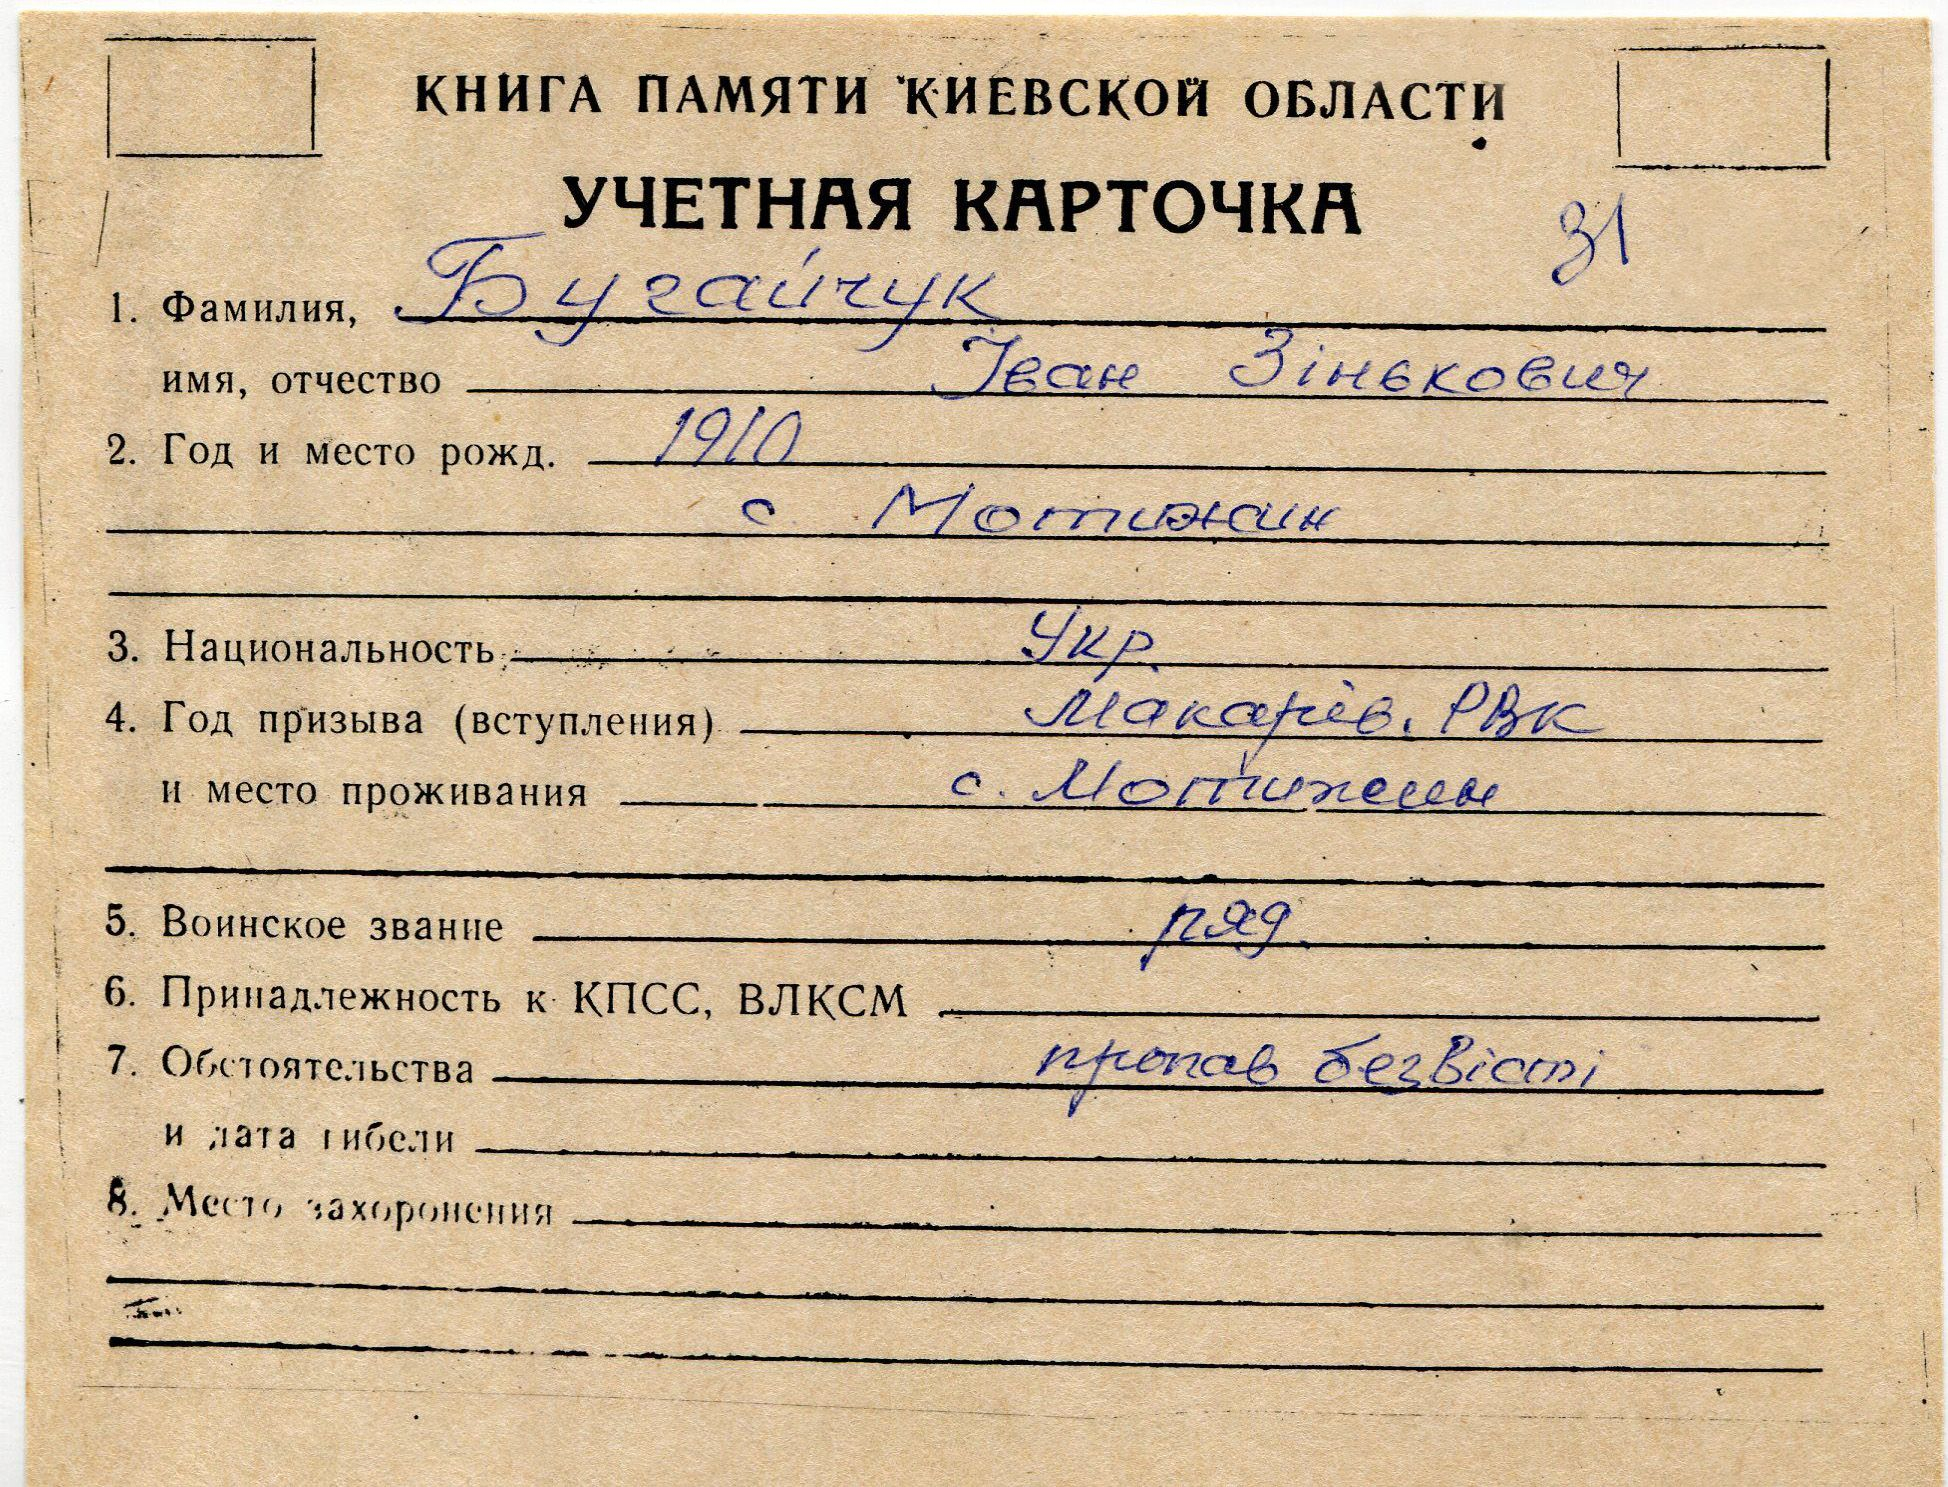 КНИГА ПАМЯТИ КИЕВСКОЙ ОБЛАСТИ
УЧЕТНАЯ КАРТОЧКА
31
1. Фамилия, Бугайчук
имя, отчество Іван Зінькович
2. Год и место рожд. 1910
с. Мотижин
3. Национальность Укр.
4. Год призыва (вступления) Макарів. РВК
и место проживания с. Мотижин
5. Воинское звание ряд.
6. Принадлежность к КПСС, ВЛКСМ
7. Обстоятельства пропав безвісті
и дата гибели
8. Место захоронения